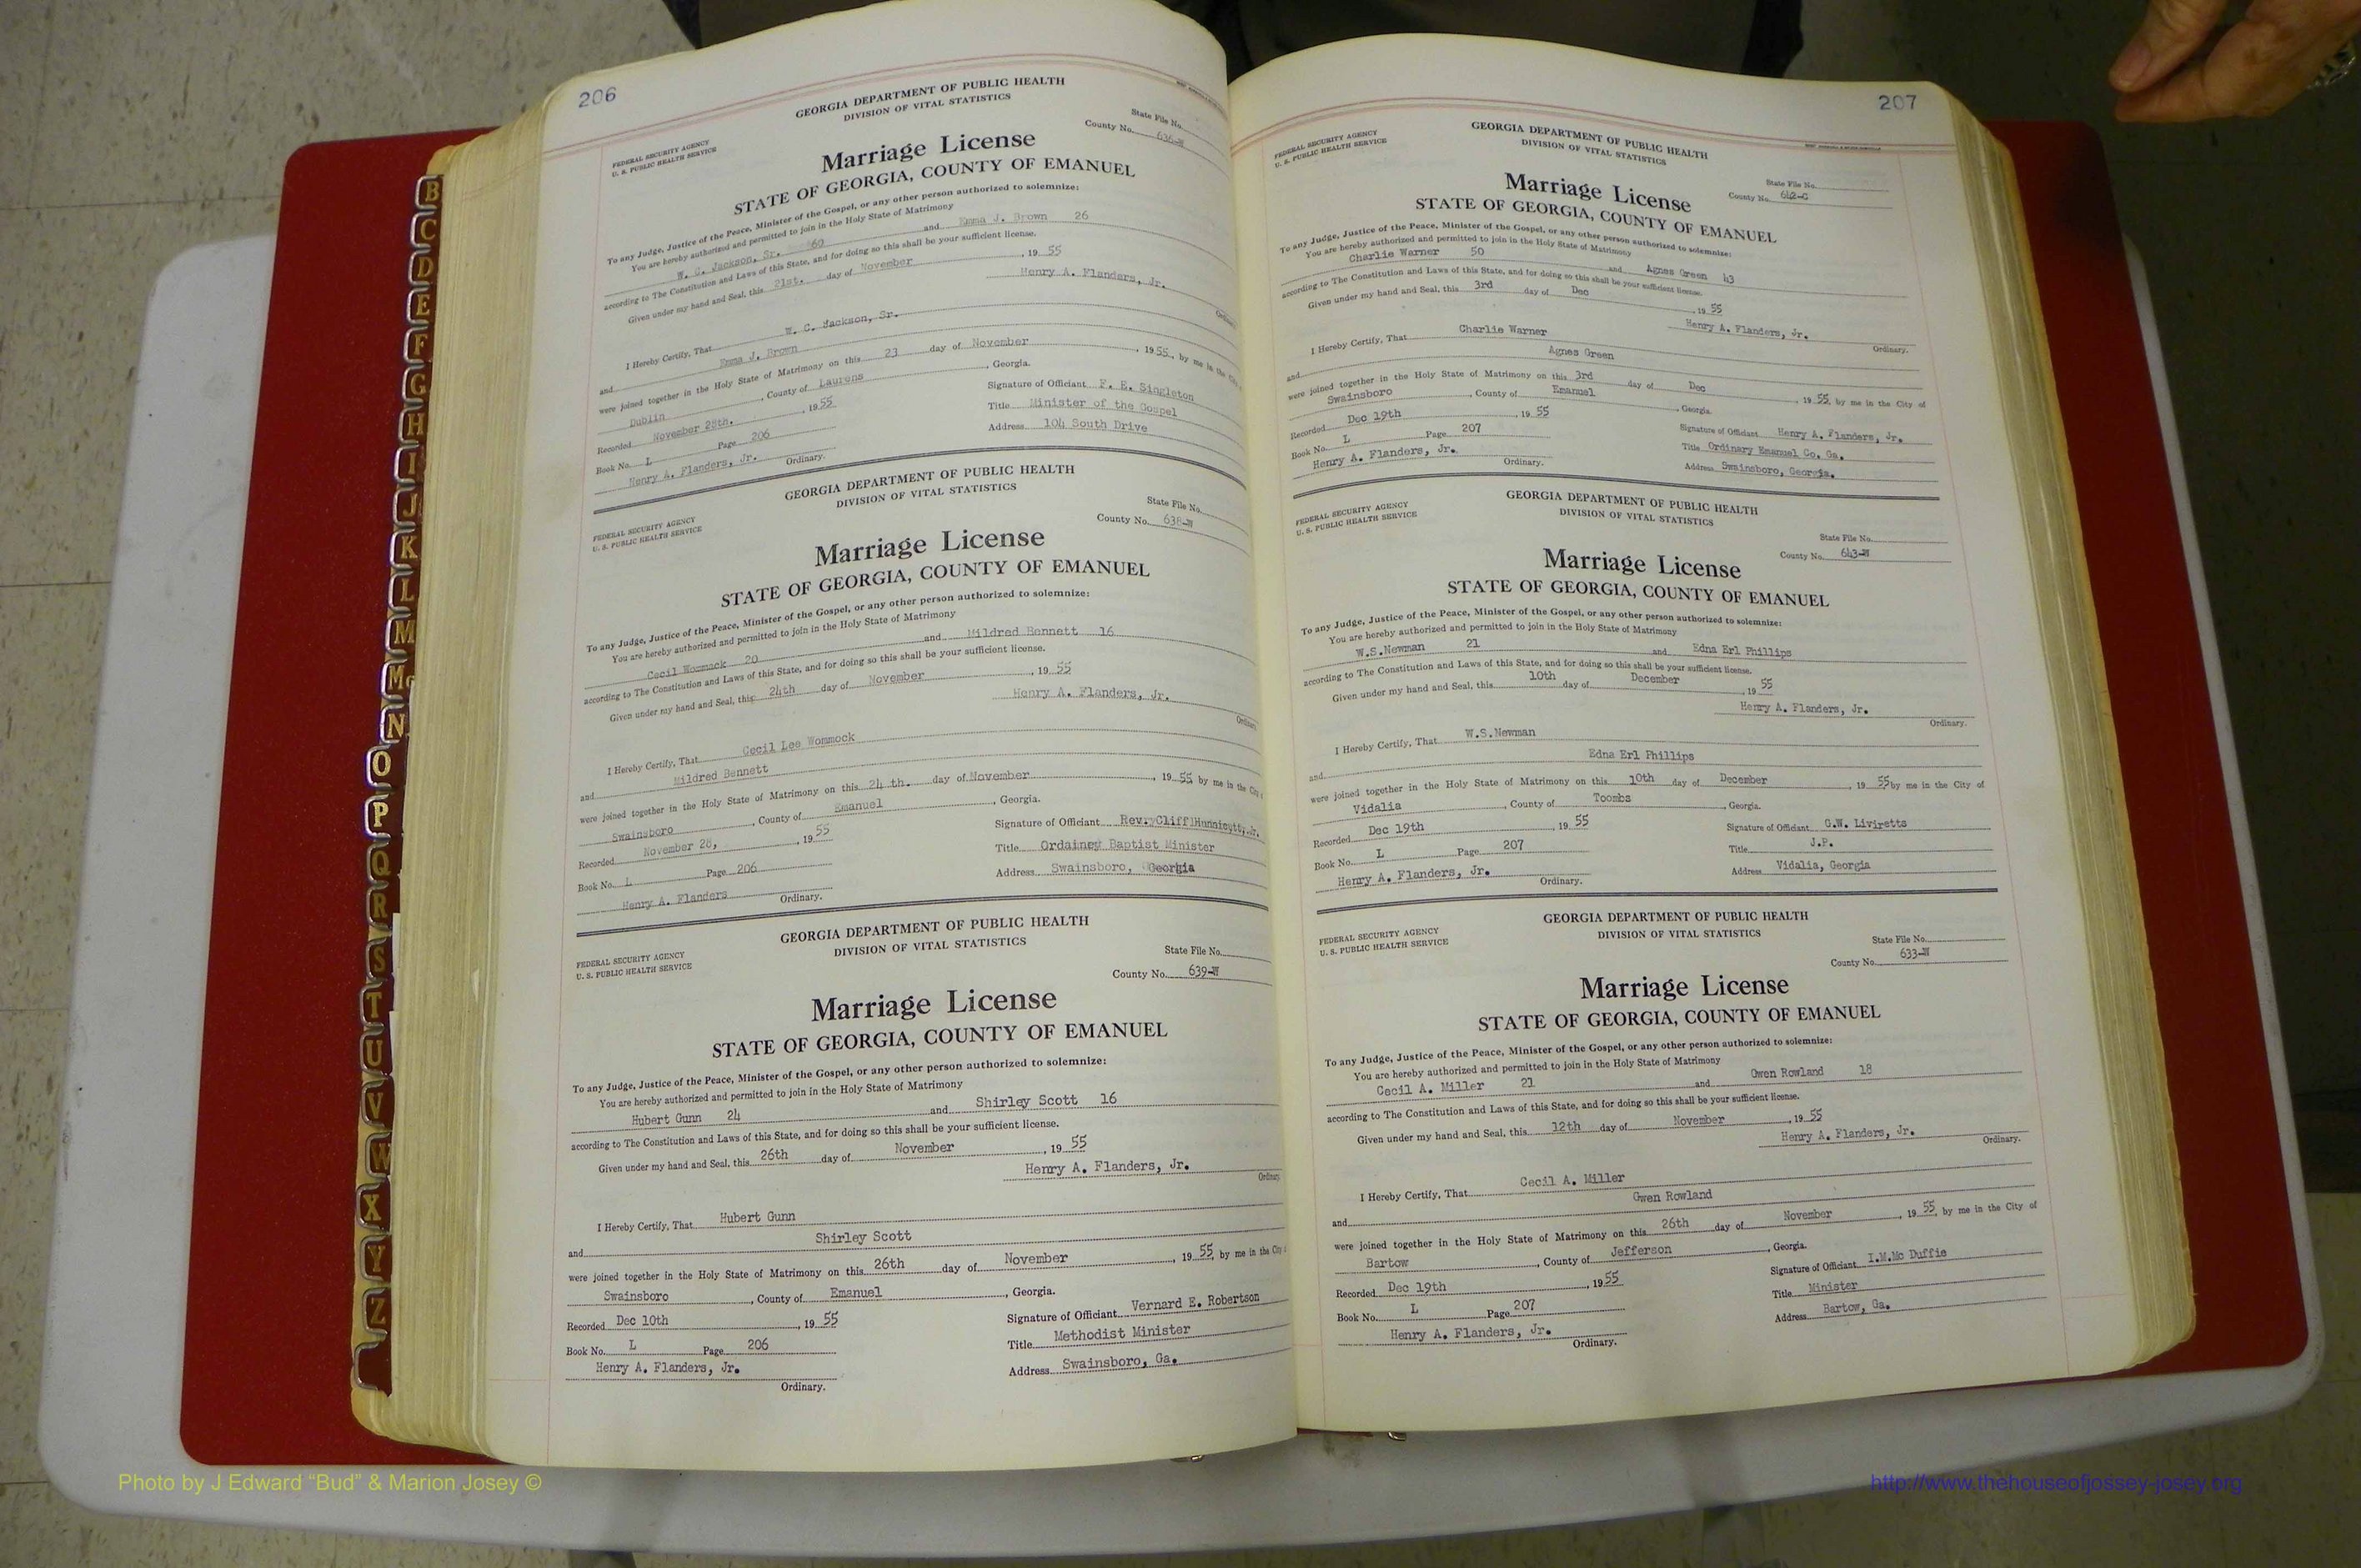 206
GEORGIA DEPARTMENT OF PUBLIC HEALTH
DIVISION OF VITAL STATISTICS
FEDERAL SECURITY AGENCY
U. S. PUBLIC HEALTH SERVICE
State File No.
County No. 636-W
Marriage License
STATE OF GEORGIA, COUNTY OF EMANUEL
To any Judge, Justice of the Peace, Minister of the Gospel, or any other person authorized to solemnize:
You are hereby authorized and permitted to join in the Holy State of Matrimony
W. C. Jackson, Sr. 60 and Emma J. Brown 26
according to The Constitution and Laws of this State, and for doing so this shall be your sufficient license.
Given under my hand and Seal, this 21st. day of November, 19 55
Henry A. Flanders, Jr.
Ordinary
I Hereby Certify, That W. C. Jackson, Sr.
and Emma J. Brown
were joined together in the Holy State of Matrimony on this 23 day of November, 19 55, by me in the City
Dublin, County of Laurens, Georgia.
Recorded November 28th., 19 55
Signature of Officiant F. E. Singleton
Book No. L Page 206
Title Minister of the Gospel
Henry A. Flanders, Jr. Ordinary.
Address 104 South Drive
GEORGIA DEPARTMENT OF PUBLIC HEALTH
DIVISION OF VITAL STATISTICS
FEDERAL SECURITY AGENCY
U. S. PUBLIC HEALTH SERVICE
State File No.
County No. 638-W
Marriage License
STATE OF GEORGIA, COUNTY OF EMANUEL
To any Judge, Justice of the Peace, Minister of the Gospel, or any other person authorized to solemnize:
You are hereby authorized and permitted to join in the Holy State of Matrimony
Cecil Wommack 20 and Mildred Bennett 16
according to The Constitution and Laws of this State, and for doing so this shall be your sufficient license.
Given under my hand and Seal, this 24th day of November, 19 55
Henry A. Flanders, Jr.
Ordinary
I Hereby Certify, That Cecil Lee Wommock
and Mildred Bennett
were joined together in the Holy State of Matrimony on this 24 th. day of November, 19 55 by me in the City
Swainsboro, County of Emanuel, Georgia.
Recorded November 28, 19 55
Signature of Officiant Rev. Cliff Hunnicutt, Jr.
Book No. L Page 206
Title Ordained Baptist Minister
Henry A. Flanders Ordinary.
Address Swainsboro, Georgia
GEORGIA DEPARTMENT OF PUBLIC HEALTH
DIVISION OF VITAL STATISTICS
FEDERAL SECURITY AGENCY
U. S. PUBLIC HEALTH SERVICE
State File No.
County No. 639-W
Marriage License
STATE OF GEORGIA, COUNTY OF EMANUEL
To any Judge, Justice of the Peace, Minister of the Gospel, or any other person authorized to solemnize:
You are hereby authorized and permitted to join in the Holy State of Matrimony
Hubert Gunn 24 and Shirley Scott 16
according to The Constitution and Laws of this State, and for doing so this shall be your sufficient license.
Given under my hand and Seal, this 26th day of November, 19 55
Henry A. Flanders, Jr.
Ordinary
I Hereby Certify, That Hubert Gunn
and Shirley Scott
were joined together in the Holy State of Matrimony on this 26th day of November, 19 55, by me in the City
Swainsboro, County of Emanuel, Georgia.
Recorded Dec 10th, 19 55
Signature of Officiant Vernard E. Robertson
Book No. L Page 206
Title Methodist Minister
Henry A. Flanders, Jr.
Ordinary.
Address Swainsboro, Ga.
207
GEORGIA DEPARTMENT OF PUBLIC HEALTH
DIVISION OF VITAL STATISTICS
FEDERAL SECURITY AGENCY
U. S. PUBLIC HEALTH SERVICE
State File No.
County No. 642-C
Marriage License
STATE OF GEORGIA, COUNTY OF EMANUEL
To any Judge, Justice of the Peace, Minister of the Gospel, or any other person authorized to solemnize:
You are hereby authorized and permitted to join in the Holy State of Matrimony
Charlie Warner 50 and Agnes Green 43
according to The Constitution and Laws of this State, and for doing so this shall be your sufficient license.
Given under my hand and Seal, this 3rd day of Dec, 19 55
Henry A. Flanders, Jr.
Ordinary.
I Hereby Certify, That Charlie Warner
and Agnes Green
were joined together in the Holy State of Matrimony on this 3rd day of Dec, 19 55, by me in the City of
Swainsboro, County of Emanuel, Georgia.
Recorded Dec 19th, 19 55
Signature of Officiant Henry A. Flanders, Jr.
Book No. L Page 207
Title Ordinary Emanuel Co. Ga.
Henry A. Flanders, Jr. Ordinary.
Address Swainsboro, Georgia.
GEORGIA DEPARTMENT OF PUBLIC HEALTH
DIVISION OF VITAL STATISTICS
FEDERAL SECURITY AGENCY
U. S. PUBLIC HEALTH SERVICE
State File No.
County No. 643-W
Marriage License
STATE OF GEORGIA, COUNTY OF EMANUEL
To any Judge, Justice of the Peace, Minister of the Gospel, or any other person authorized to solemnize:
You are hereby authorized and permitted to join in the Holy State of Matrimony
W.S.Newman 21 and Edna Erl Phillips
according to The Constitution and Laws of this State, and for doing so this shall be your sufficient license.
Given under my hand and Seal, this 10th day of December, 19 55
Henry A. Flanders, Jr.
Ordinary.
I Hereby Certify, That W.S.Newman
and Edna Erl Phillips
were joined together in the Holy State of Matrimony on this 10th day of December, 19 55 by me in the City of
Vidalia, County of Toombs, Georgia.
Recorded Dec 19th, 19 55
Signature of Officiant G.W. Liviretts
Book No. L Page 207
Title J.P.
Henry A. Flanders, Jr. Ordinary.
Address Vidalia, Georgia
GEORGIA DEPARTMENT OF PUBLIC HEALTH
DIVISION OF VITAL STATISTICS
FEDERAL SECURITY AGENCY
U. S. PUBLIC HEALTH SERVICE
State File No.
County No. 633-W
Marriage License
STATE OF GEORGIA, COUNTY OF EMANUEL
To any Judge, Justice of the Peace, Minister of the Gospel, or any other person authorized to solemnize:
You are hereby authorized and permitted to join in the Holy State of Matrimony
Cecil A. Miller 21 and Gwen Rowland 18
according to The Constitution and Laws of this State, and for doing so this shall be your sufficient license.
Given under my hand and Seal, this 12th day of November, 19 55
Henry A. Flanders, Jr. Ordinary.
I Hereby Certify, That Cecil A. Miller
and Gwen Rowland
were joined together in the Holy State of Matrimony on this 26th day of November, 19 55, by me in the City of
Bartow, County of Jefferson, Georgia.
Recorded Dec 19th, 19 55
Signature of Officiant I.M.Mc Duffie
Book No. L Page 207
Title Minister
Henry A. Flanders, Jr.
Ordinary.
Address Bartow, Ga.
B
C
D
E
F
G
H
I
J
K
L
M
Mc
N
O
P
Q
R
S
T
U
V
W
X
Y
Z
Photo by J Edward “Bud” & Marion Josey ©
http://www.thehouseofjossey-josey.org